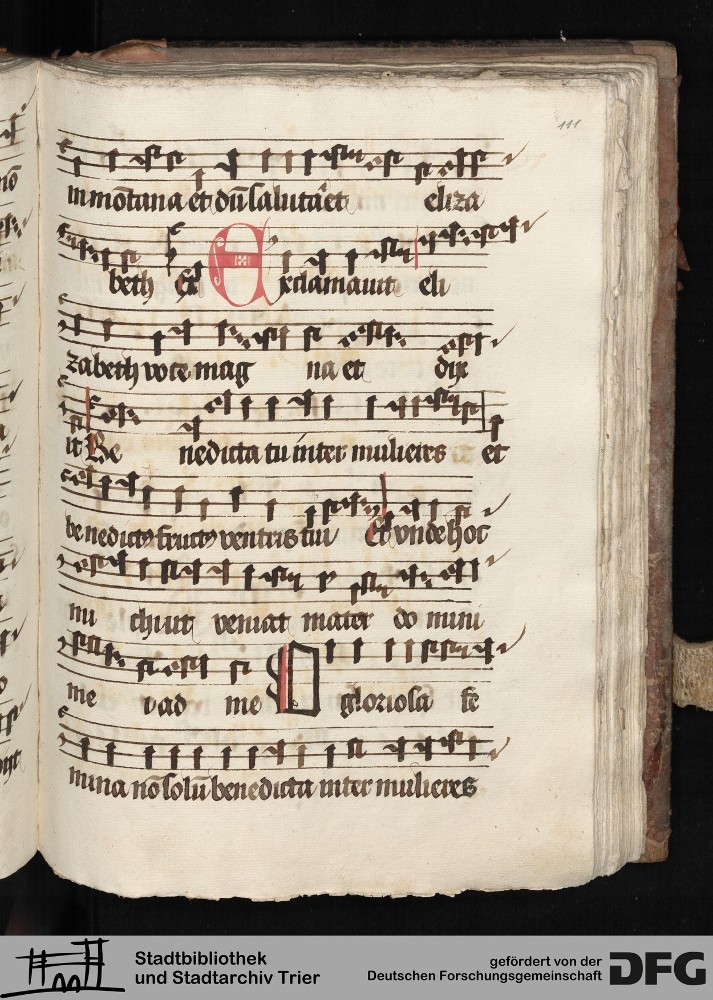 111
in mōtana et dū salutāret eliza
beth Et Exclamauit eli
zabeth voce mag na et dix
it Be nedicta tu inter mulieres et
benedictꝰ fructꝰ ventris tui Et vnde hoc
mi chi ut veniat mater do mini
me ad me O gloriosa fe
mina nō solū benedicta inter mulieres
Stadtbibliothek
und Stadtarchiv Trier
gefördert von der
Deutschen Forschungsgemeinschaft
DFG